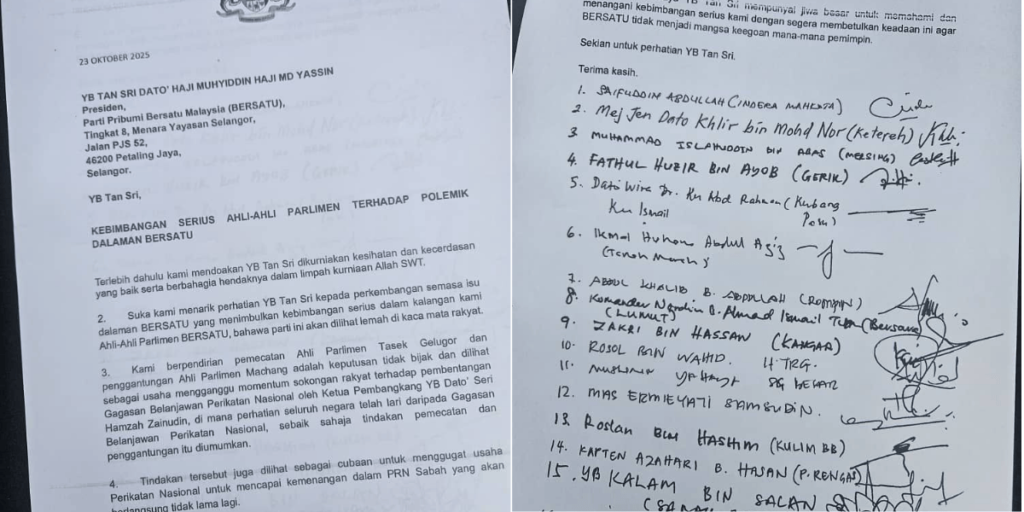 23 OKTOBER 2025
YB TAN SRI DATO' HAJI MUHYIDDIN HAJI MD YASSIN
Presiden,
Parti Pribumi Bersatu Malaysia (BERSATU),
Tingkat 8, Menara Yayasan Selangor,
Jalan PJS 52,
46200 Petaling Jaya,
Selangor.
YB Tan Sri,
KEBIMBANGAN SERIUS AHLI-AHLI PARLIMEN TERHADAP POLEMIK
DALAMAN BERSATU
Terlebih dahulu kami mendoakan YB Tan Sri dikurniakan kesihatan dan kecerdasan
yang baik serta berbahagia hendaknya dalam limpah kurniaan Allah SWT.
2. Suka kami menarik perhatian YB Tan Sri kepada perkembangan semasa isu
dalaman BERSATU yang menimbulkan kebimbangan serius dalam kalangan kami
Ahli-Ahli Parlimen BERSATU, bahawa parti ini akan dilihat lemah di kaca mata rakyat.
3. Kami berpendirian pemecatan Ahli Parlimen Tasek Gelugor dan
penggantungan Ahli Parlimen Machang adalah keputusan tidak bijak dan dilihat
sebagai usaha mengganggu momentum sokongan rakyat terhadap pembentangan
Gagasan Belanjawan Perikatan Nasional oleh Ketua Pembangkang YB Dato' Seri
Hamzah Zainudin, di mana perhatian seluruh negara telah lari daripada Gagasan
Belanjawan Perikatan Nasional, sebaik sahaja tindakan pemecatan dan
penggantungan itu diumumkan.
4. Tindakan tersebut juga dilihat sebagai cubaan untuk menggugat usaha
Perikatan Nasional untuk mencapai kemenangan dalam PRN Sabah yang akan
berlangsung tidak lama lagi.
YB Tan Sri mempunyai jiwa besar untuk memahami dan
menangani kebimbangan serius kami dengan segera membetulkan keadaan ini agar
BERSATU tidak menjadi mangsa keegoan mana-mana pemimpin.
Sekian untuk perhatian YB Tan Sri.
Terima kasih.
1. SAIFUDDIN ABDULLAH (INDERA MAHKOTA)
2. Mej Jen Dato Khlir bin Mohd Nor (Ketereh)
3. MUHAMMAD ISLAHUDDIN BIN ABAS (MERSING)
4. FATHUL HUZIR BIN AYOB (GERIK)
5. Dato Wira Dr. Ku Abd Rahman (Kubang
Ku Ismail Pasu)
6. Ikmal Hisham Abdul Aziz
(Tanah Merah)
7. ABDUL KHALIB B. ABDULLAH (ROMPIN)
8. Komander Nordin B. Ahmad Ismail TLDM (Bersara)
(LUMUT)
9. ZAKRI BIN HASSAN (KANGAR)
10. ROSOL BIN WAHID. H. TRG.
11. YAHAYA SG BESAR
12. MAS ERMIEYATI SAMSUDIN.
13. Roslan Bin HASHIM (KULIM BB)
14. KAPTEN AZAHARI B. HASAN (P. RENGAS)
15. YB KALAM BIN SALAN